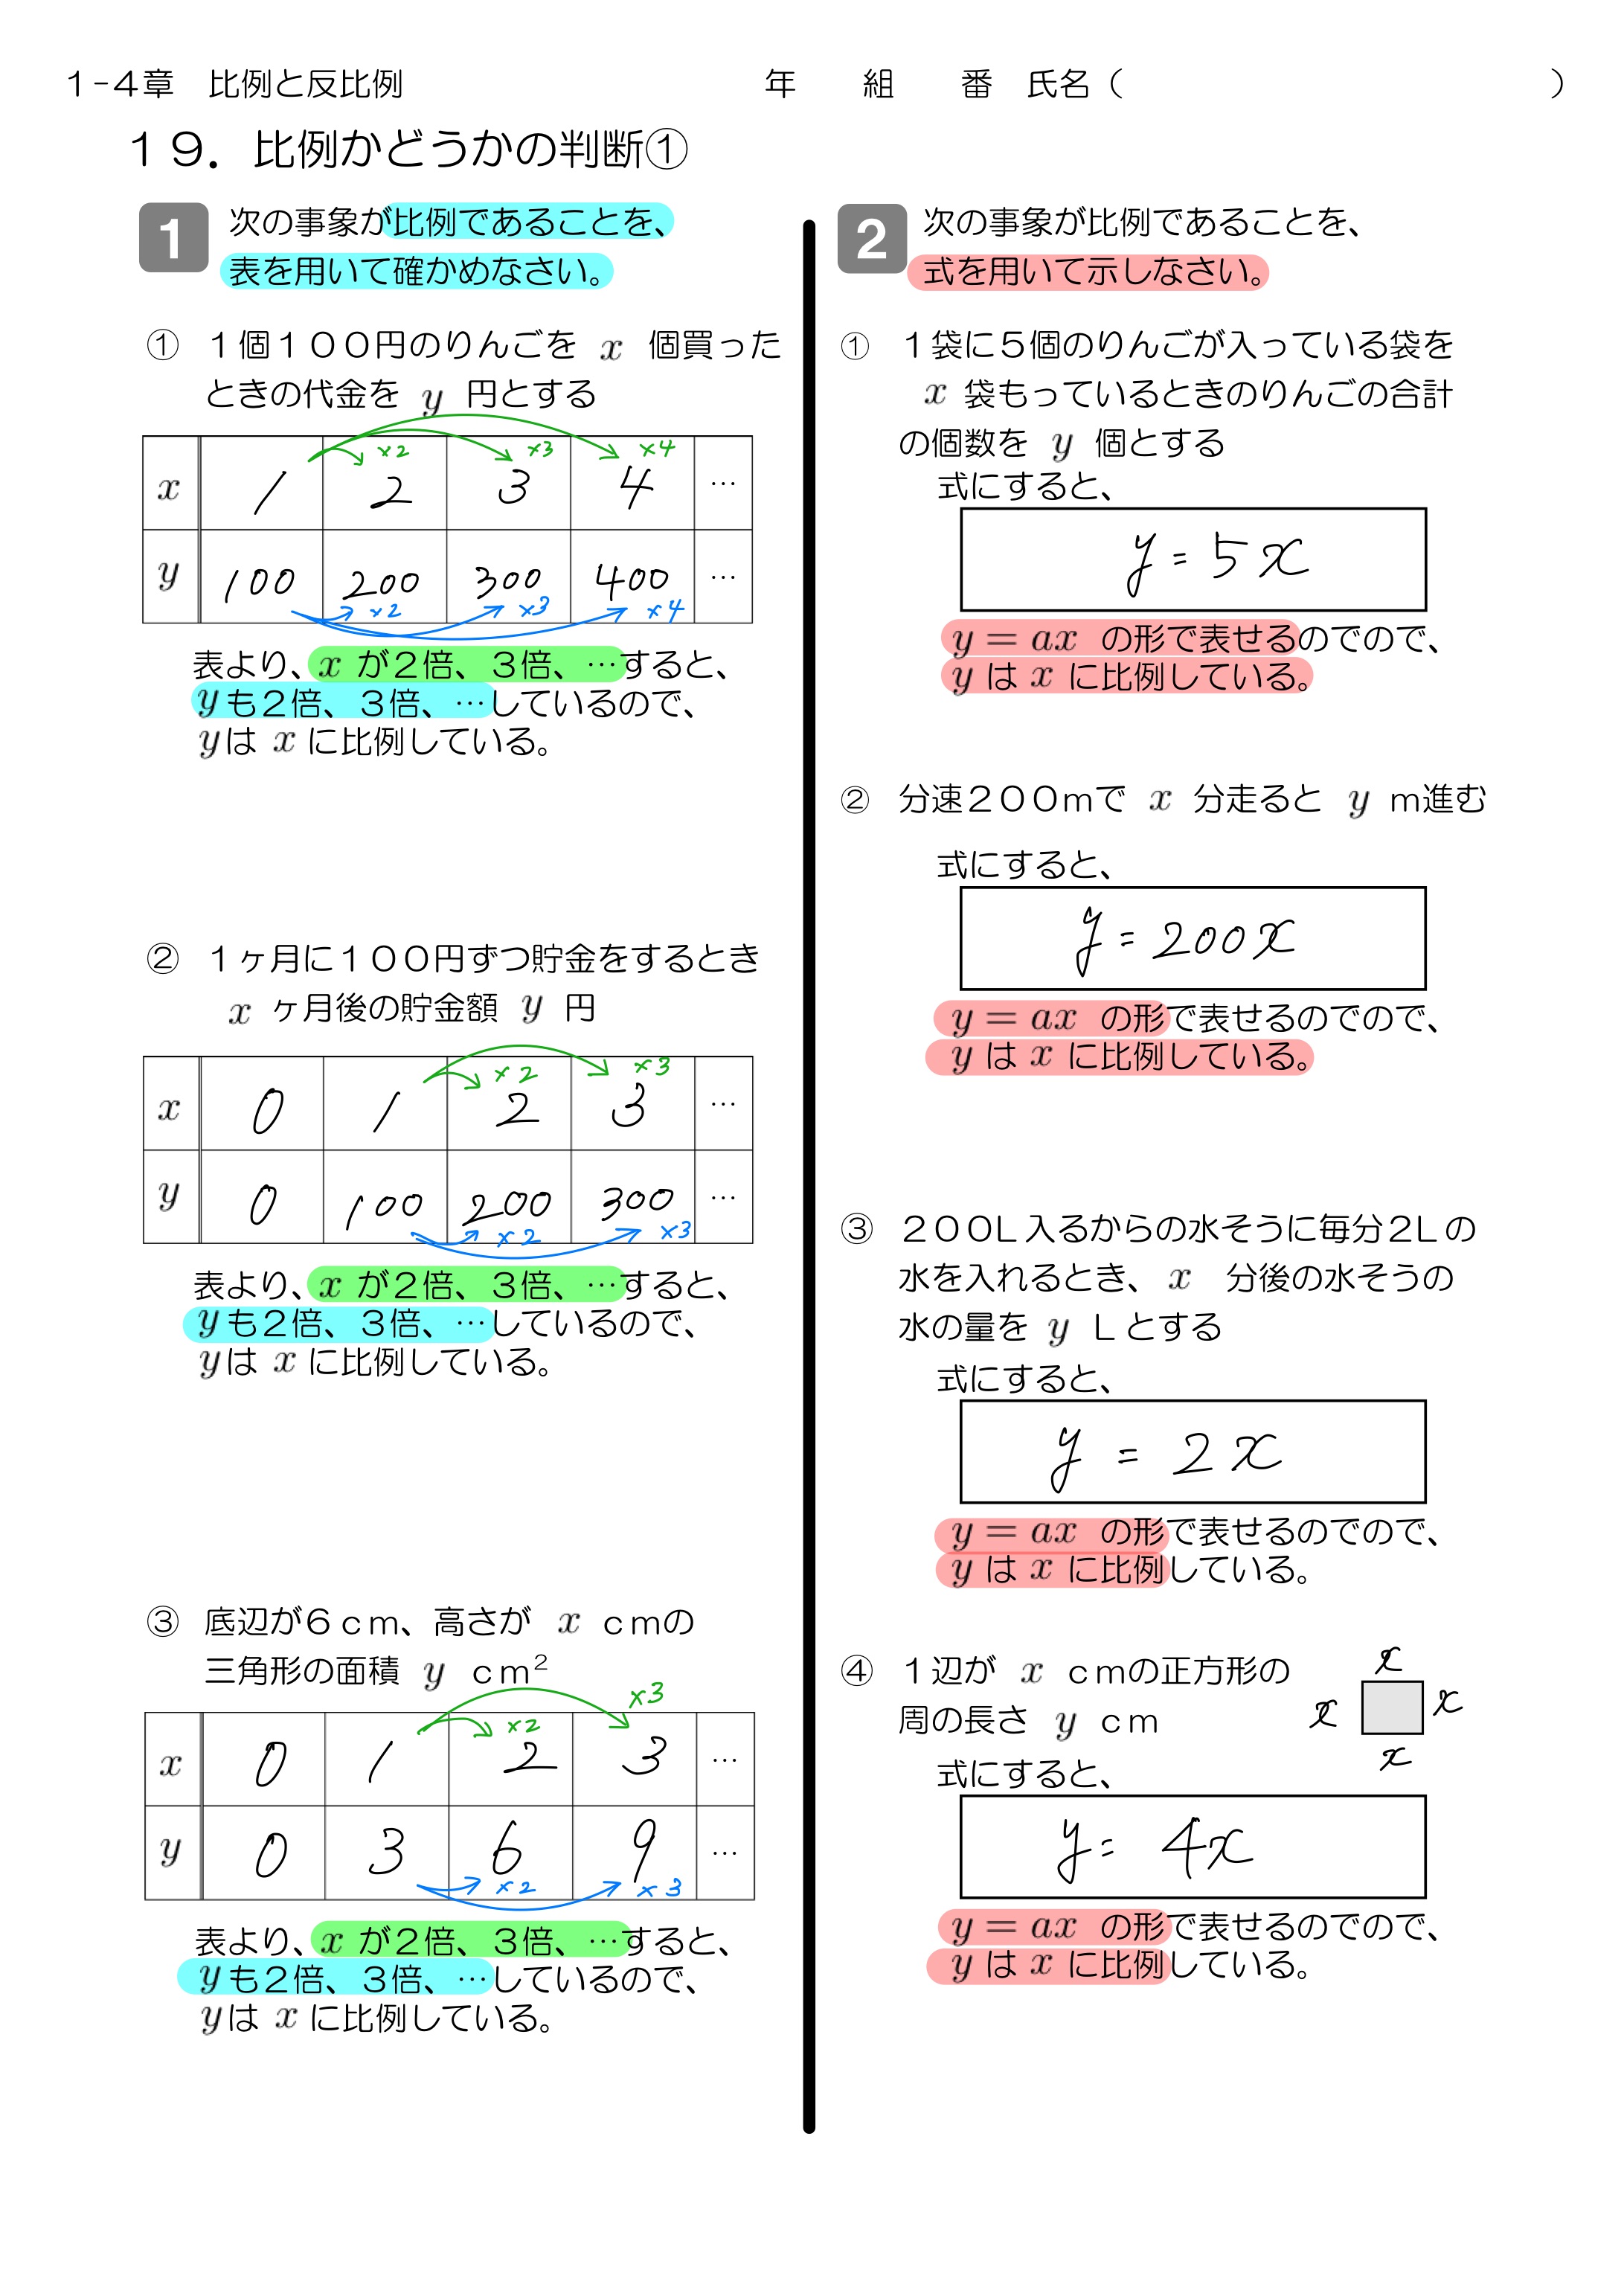 １-４章　比例と反比例　　　　年　　組　　番　氏名（　　　　　　　）
１９．比例かどうかの判断①
1 次の事象が比例であることを、
表を用いて確かめなさい。
① １個１００円のりんごを x 個買った
ときの代金を y 円とする
×2 ×3 ×4
x 1 2 3 4 …
y 100 200 300 400 …
×2 ×3 ×4
表より、x が２倍、３倍、…すると、
y も２倍、３倍、…しているので、
y は x に比例している。
② １ヶ月に１００円ずつ貯金をするとき
x ヶ月後の貯金額 y 円
×2 ×3
x 0 1 2 3 …
y 0 100 200 300 …
×2 ×3
表より、x が２倍、３倍、…すると、
y も２倍、３倍、…しているので、
y は x に比例している。
③ 底辺が６ｃｍ、高さが x ｃｍの
三角形の面積 y ｃｍ²
×2 ×3
x 0 1 2 3 …
y 0 3 6 9 …
×2 ×3
表より、x が２倍、３倍、…すると、
y も２倍、３倍、…しているので、
y は x に比例している。
2 次の事象が比例であることを、
式を用いて示しなさい。
① １袋に５個のりんごが入っている袋を
x 袋もっているときのりんごの合計
の個数を y 個とする
式にすると、
y = 5x
y = ax の形で表せるのでので、
y は x に比例している。
② 分速２００ｍで x 分走ると y ｍ進む
式にすると、
y = 200x
y = ax の形で表せるのでので、
y は x に比例している。
③ ２００Ｌ入るからの水そうに毎分２Ｌの
水を入れるとき、x 分後の水そうの
水の量を y Ｌとする
式にすると、
y = 2x
y = ax の形で表せるのでので、
y は x に比例している。
④ １辺が x ｃｍの正方形の
周の長さ y ｃｍ
x
x x
x
式にすると、
y = 4x
y = ax の形で表せるのでので、
y は x に比例している。